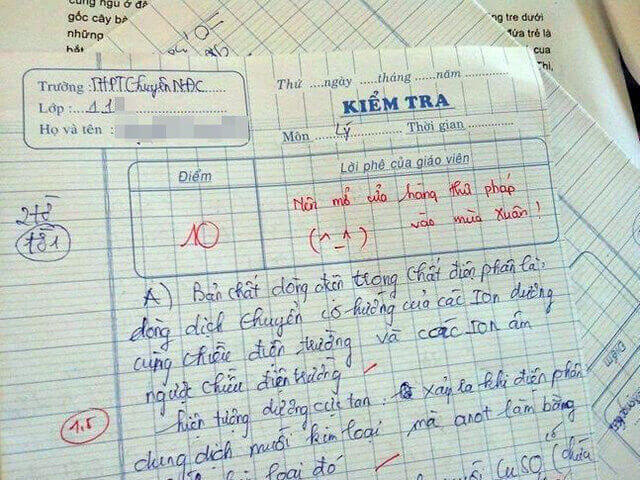 cùng ngủ ở
gốc cây
những
ng tre dưới
đứa trẻ là
cua
Trường : THPT Chuyên NĐC
Lớp : 11
Họ và tên :
Thứ ....ngày .....tháng .....năm
KIỂM TRA
Môn Lý Thời gian
Điểm
Lời phê của giáo viên
10
Nên mở cửa hàng thư pháp
vào mùa Xuân !
(^_^)
2 tờ
tờ 1
A) Bản chất dòng điện trong chất điện phân là:
dòng dịch chuyển có hướng của các ION dương
cùng chiều điện trường và các ION âm
ngược chiều điện trường
1,5
hiện tượng dương cực tan: xảy ra khi điện phân
dung dịch muối kim loại mà anot làm bằng
loại đó
CuSO4